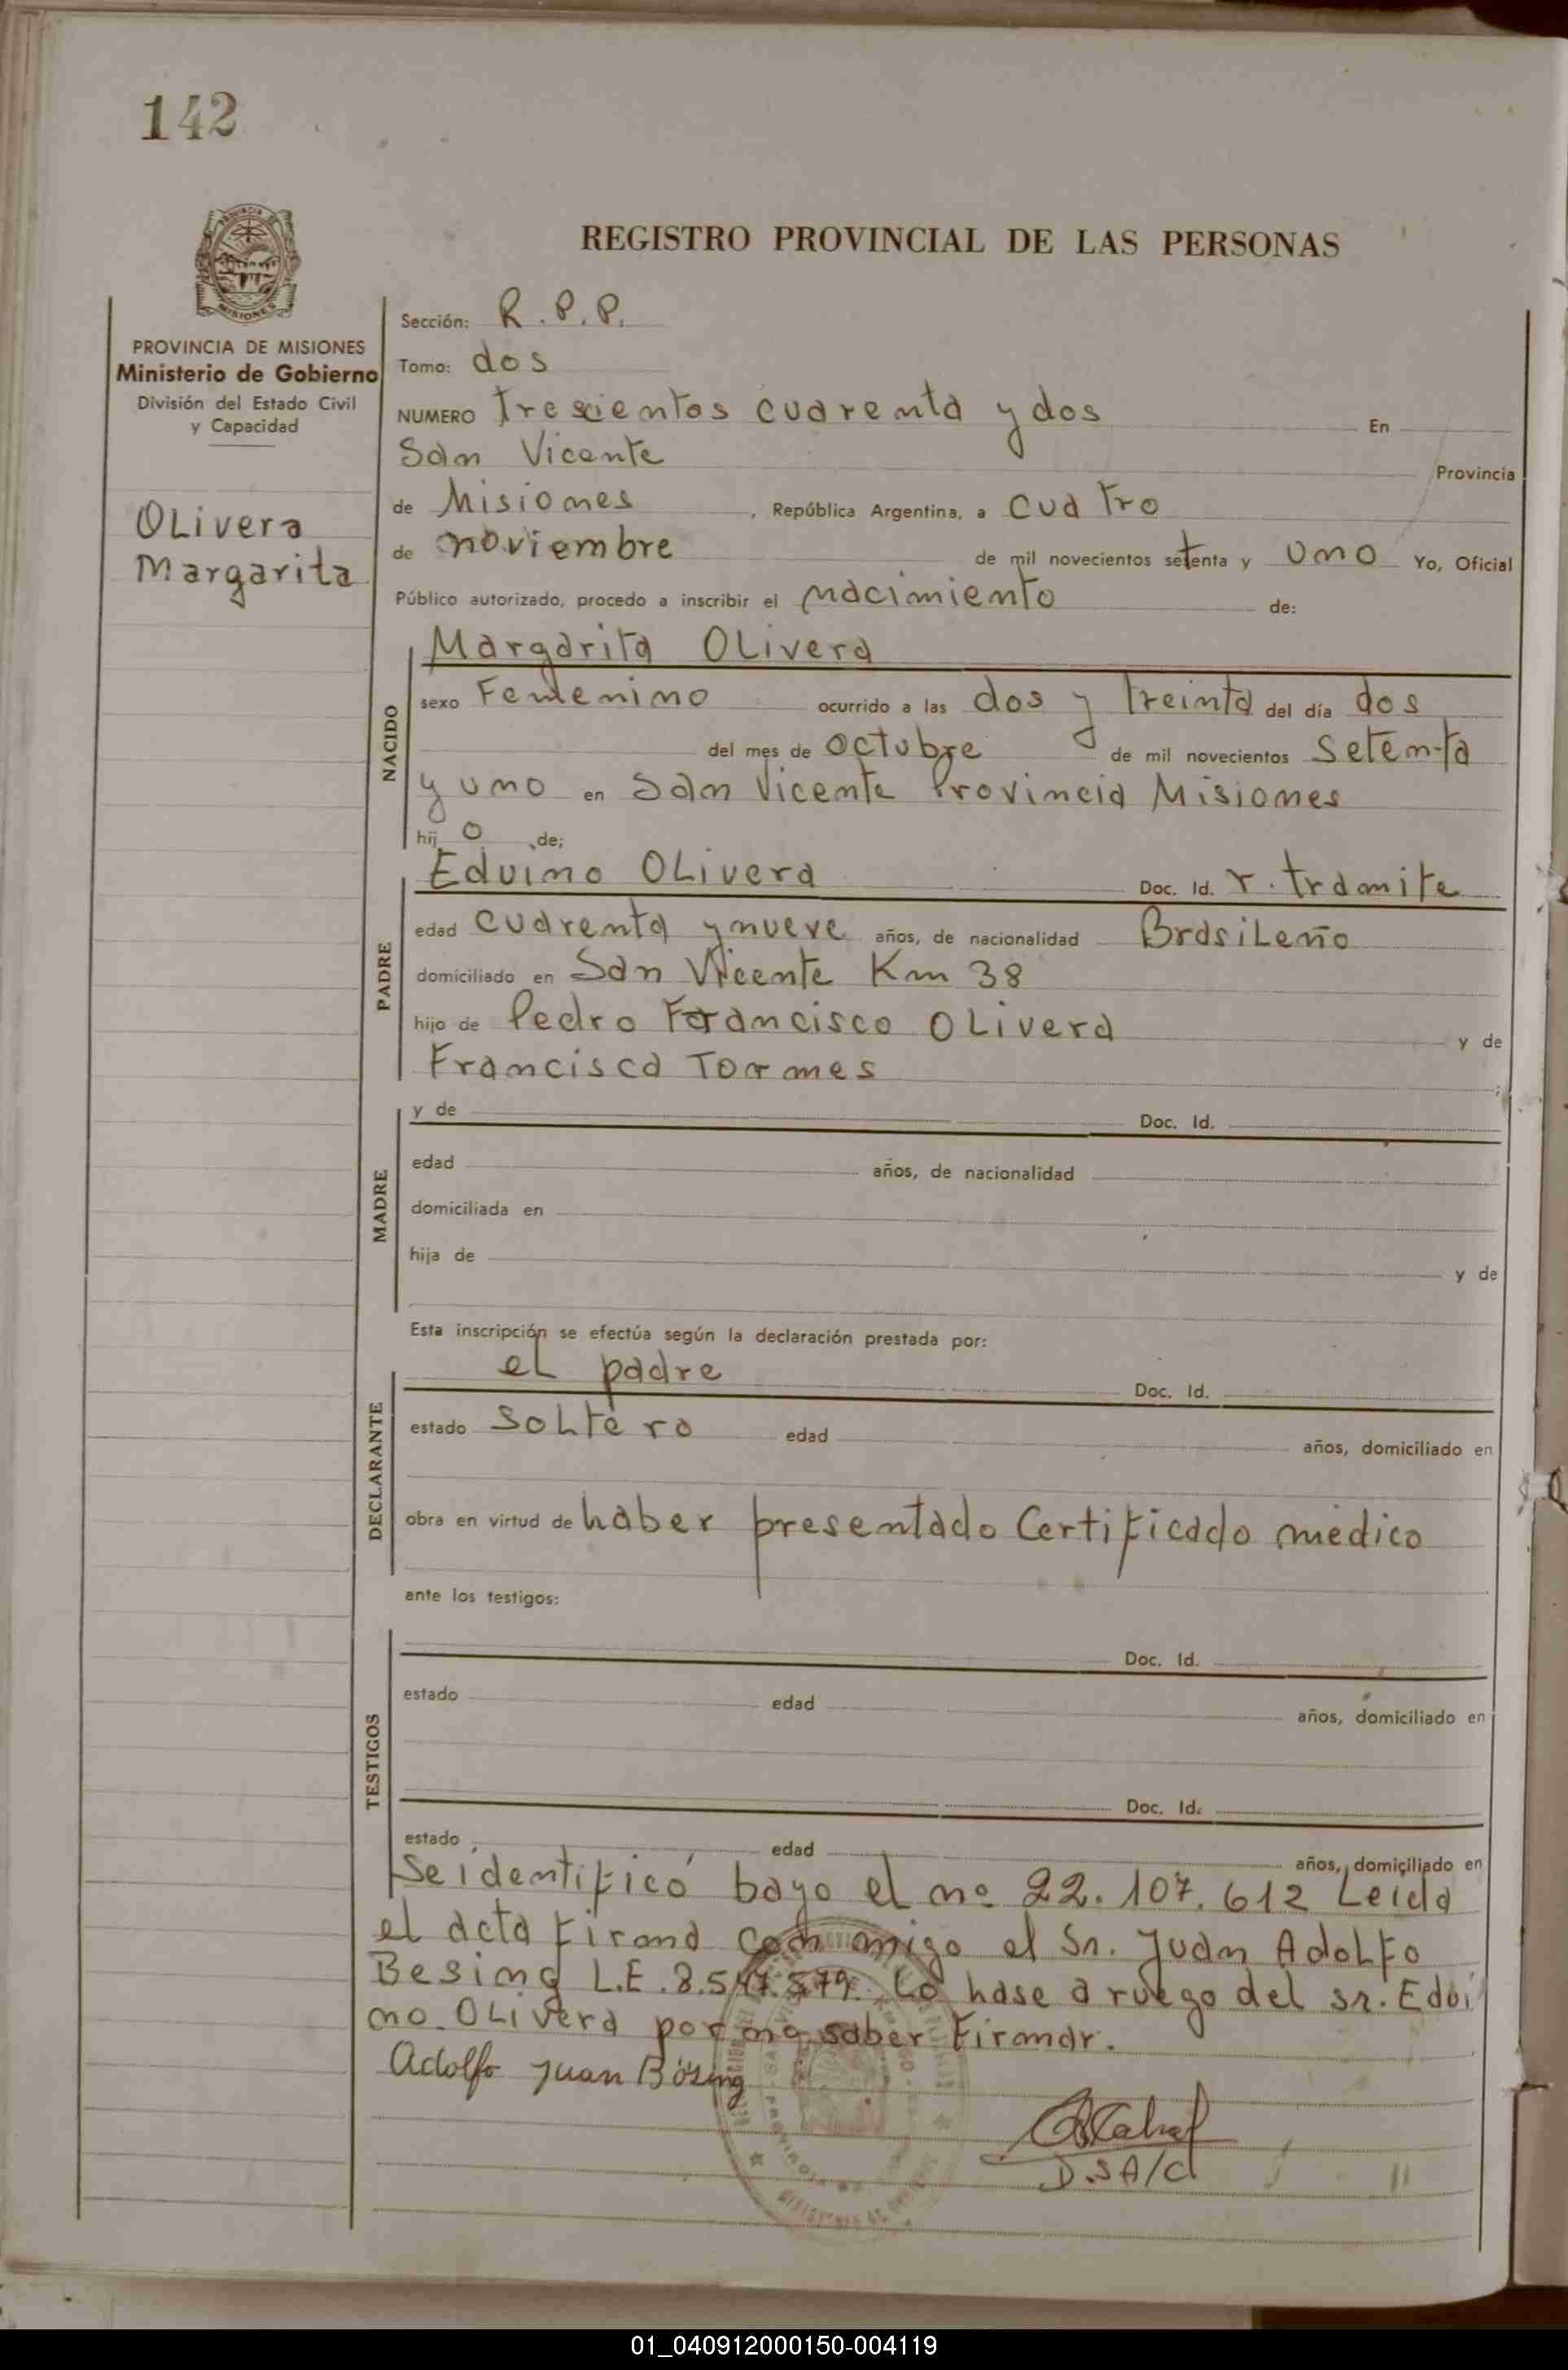 142
REGISTRO PROVINCIAL DE LAS PERSONAS
PROVINCIA DE MISIONES
Ministerio de Gobierno
División del Estado Civil
y Capacidad
OLivera
Margarita
Sección: R.P.P.
Tomo: dos
NUMERO trescientos cuarenta y dos En
San Vicente Provincia
de Misiones, República Argentina, a cuatro
de noviembre de mil novecientos setenta y uno Yo, Oficial
Público autorizado, procedo a inscribir el nacimiento de:
NACIDO
Margarita OLivera
sexo Femenino ocurrido a las dos y treinta del día dos
del mes de octubre de mil novecientos setenta
y uno en San Vicente Provincia Misiones
hij o de;
PADRE
Eduino OLivera Doc. Id. r. tramite
edad cuarenta y nueve años, de nacionalidad BrasiLeño
domiciliado en San Vicente Km 38
hijo de Pedro Francisco OLivera y de
Francisca Tormes
MADRE
y de Doc. Id.
edad años, de nacionalidad
domiciliada en
hija de y de
Esta inscripción se efectúa según la declaración prestada por:
DECLARANTE
eL padre Doc. Id.
estado soLtero edad años, domiciliado en
obra en virtud de haber presentado Certificado médico
ante los testigos:
TESTIGOS
Doc. Id.
estado edad años, domiciliado en
Doc. Id.
estado edad años, domiciliado en
se identificó bayo el nº 22.107.612 Leida
el acta firana con migo el Sr. Juan AdoLfo
Besing L.E. 8.547.579. Lo hase a ruego del sr. Edui
no OLivera por no saber firanar.
Adolfo Juan Bösing
D.S A/C
01_040912000150-004119